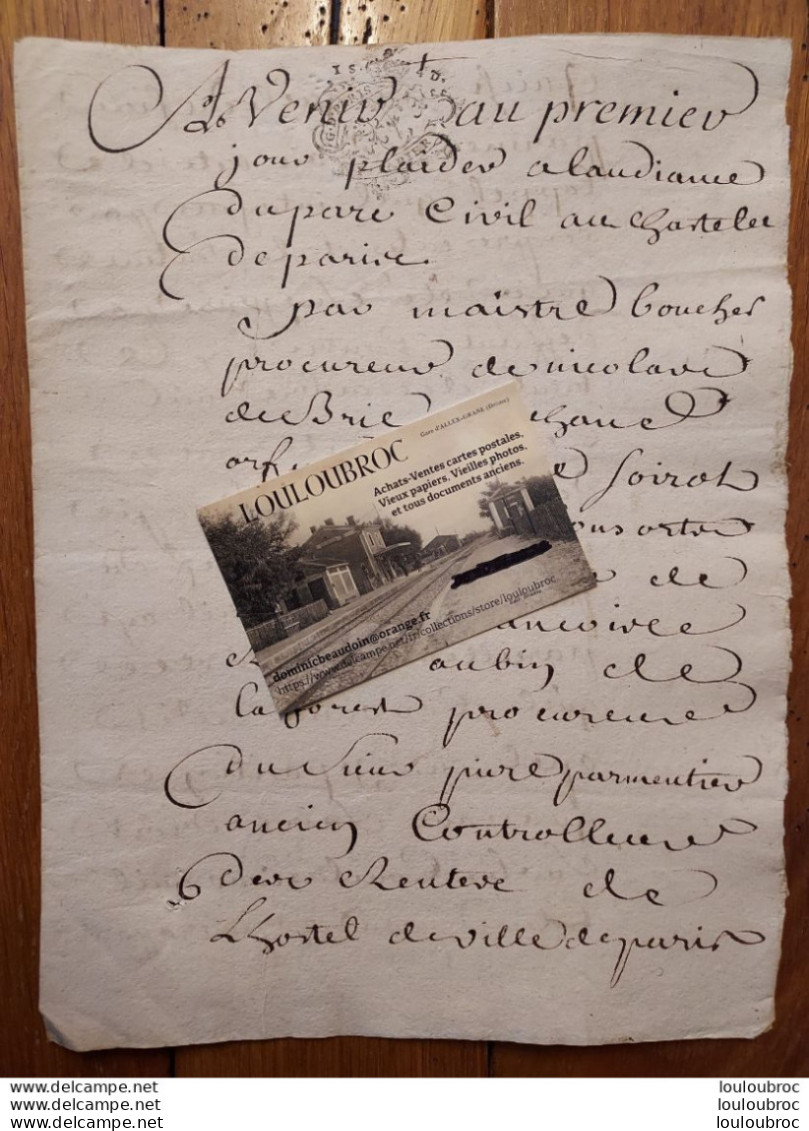 A Venir au premier
jour plaider a laudiance
du parc Civil au Chastelet
de parise
par maistre boucher
procureur de nicolas
de Brie
orf
soirot
de
aubin de
la forest procureur
du sieur pierre parmentier
ancien Controlleur
des Rentes de
Lhostel de ville de paris
LOULOUBROC
Gare d'ALLEX-GRANE (Drôme)
Achats-Ventes cartes postales,
Vieux papiers, Vieilles photos,
et tous documents anciens.
dominicbeaudoin@orange.fr
https://www.delcampe.net/fr/collections/store/louloubroc
www.delcampe.net louloubroc
www.delcampe.net louloubroc
www.delcampe.net louloubroc